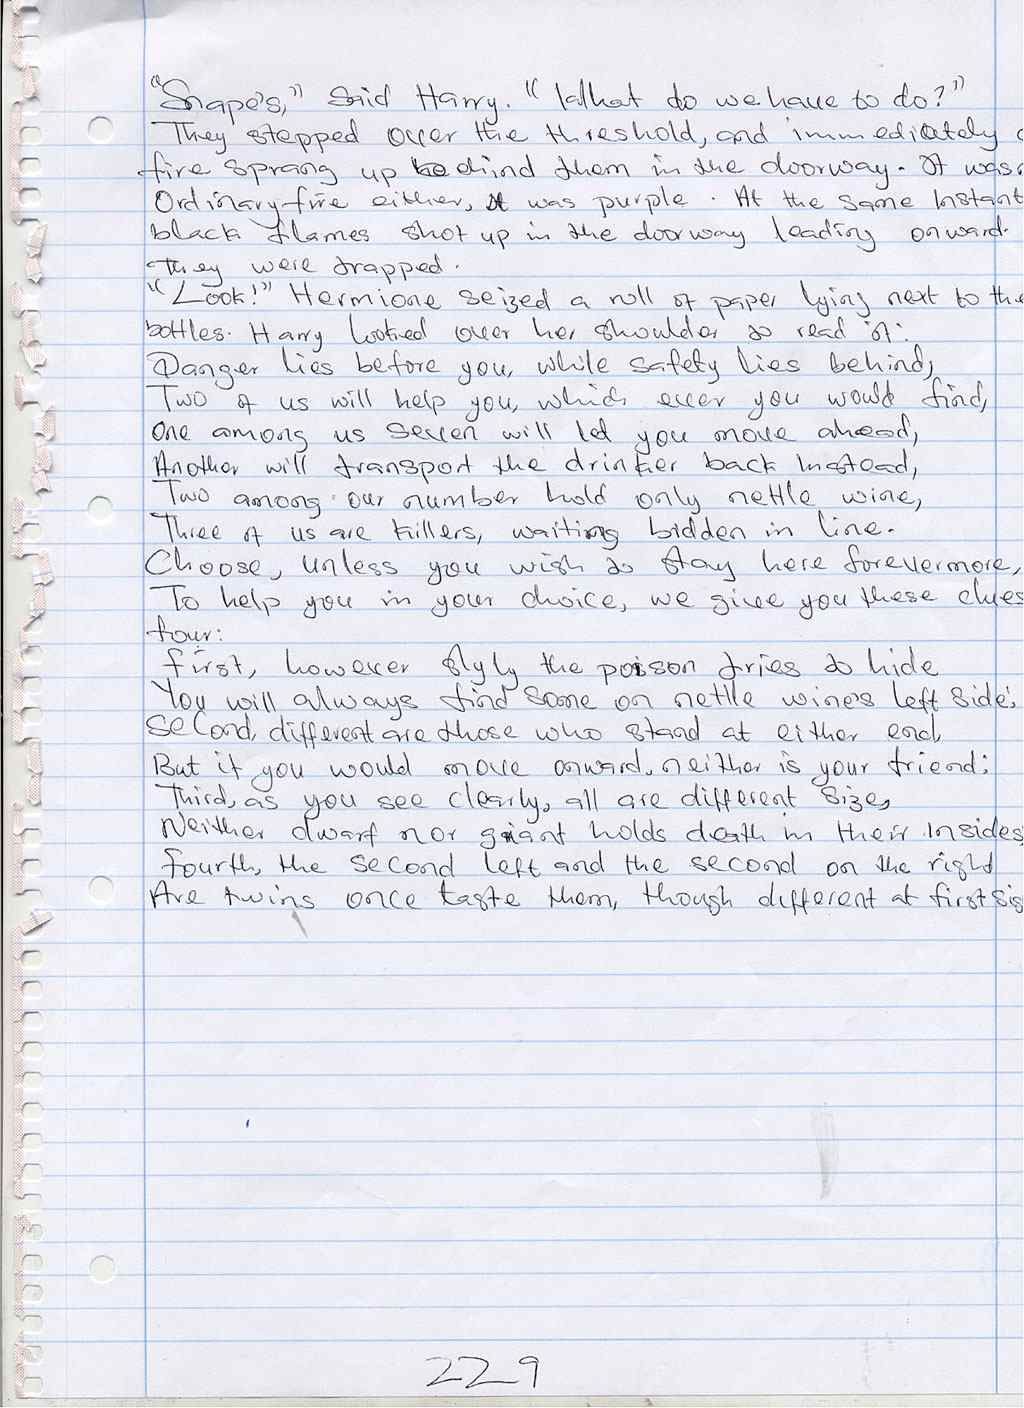 "Snape's," said Harry. "What do we have to do?"
They stepped over the threshold, and immediately a
fire sprang up behind them in the doorway. It was
Ordinary fire either, it was purple. At the same Instant
black flames shot up in the doorway leading onward.
They were trapped.
"Look!" Hermione seized a roll of paper lying next to the
bottles. Harry looked over her shoulder to read it:
Danger lies before you, while safety lies behind,
Two of us will help you, which ever you would find,
One among us seven will let you move ahead,
Another will transport the drinker back Instead,
Two among our number hold only nettle wine,
Three of us are killers, waiting bidden in line.
Choose, unless you wish to stay here forevermore,
To help you in your choice, we give you these clues
four:
first, however slyly the poison tries to hide
You will always find some on nettle wine's left side;
Second, different are those who stand at either end,
But if you would move onward, neither is your friend;
Third, as you see clearly, all are different size,
Neither dwarf nor giant holds death in their Insides
fourth, the second left and the second on the right
Are twins once taste them, though different at first sig
229